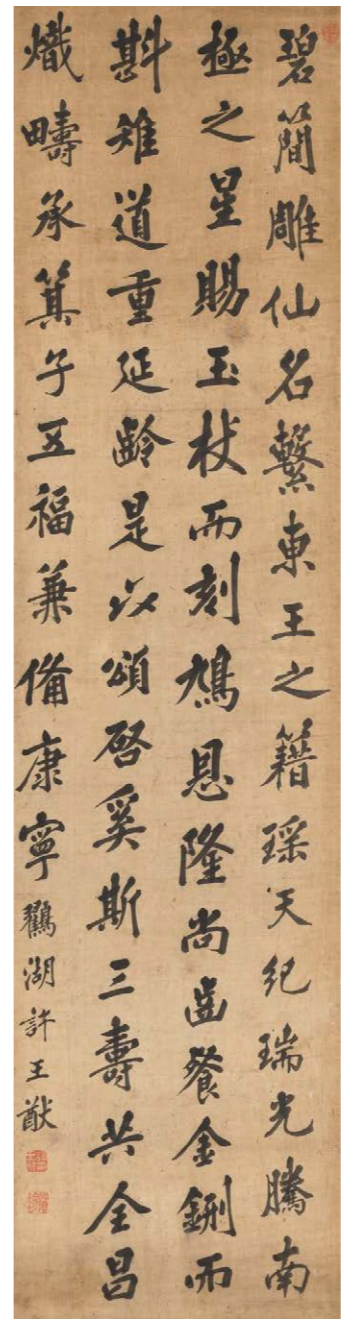 碧簡雕仙名繫東王之籍瑶天紀瑞光騰南
極之星賜玉杖而刻鳩恩隆尚齒餐金鉶而
斟雉道重延齡是以頌啓奚斯三壽共全昌
熾疇承箕子五福兼備康寧鸛湖許王猷